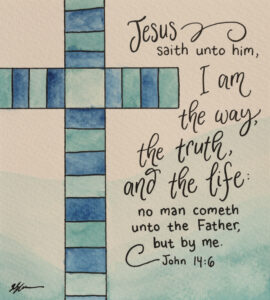 Jesus
saith unto him,
I am
the way,
the truth,
and the life:
no man cometh
unto the Father,
but by me.
John 14:6